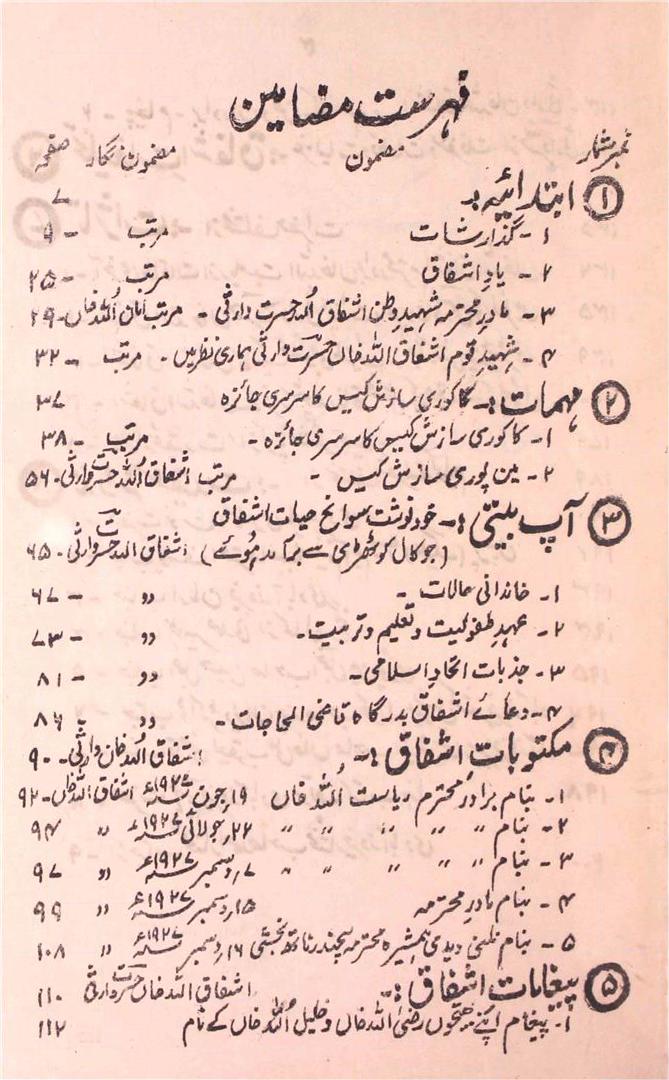 فہرست مضامین
نمبر شمار مضمون مضمون نگار صفحہ
۱ ابتدائیہ:۔ ۷
۱۔ گذارشات مرتب ۔ ۹
۲۔ یادِ اشفاق مرتب ۔ ۲۵
۳۔ مادرِ محترمہ شہیدِ وطن اشفاق اللہ حسرت وارثی ۔ مرتب امان اللہ خاں۔ ۲۹
۴۔ شہیدِ قوم اشفاق اللہ خاں حسرت وارثی ہماری نظر میں۔ مرتب ۔ ۳۲
۲ مہمات:۔ کاکوری سازش کیس کا سرسری جائزہ ۳۷
۱۔ کاکوری سازش کیس کا سرسری جائزہ ۔ مرتب ۔ ۳۸
۲۔ مین پوری سازش کیس ۔ مرتب اشفاق اللہ حسرت وارثی۔ ۵۶
۳ آپ بیتی:۔ خود نوشت سوانح حیات اشفاق
(جو کال کوٹھڑی سے برآمد ہوئے) اشفاق اللہ حسرت وارثی۔ ۶۵
۱۔ خاندانی حالات ۔ 〃 ۔ ۶۷
۲۔ عہدِ طفولیت و تعلیم و تربیت۔ 〃 ۔ ۷۳
۳۔ جذبات اتحادِ اسلامی۔ 〃 ۔ ۸۱
۴۔ دعائے اشفاق بدرگاہ قاضی الحاجات۔ 〃 ۔ ۸۶
۴ مکتوباتِ اشفاق:۔ اشفاق اللہ خاں وارثی۔ ۹۰
۱۔ بنام برادرِ محترم ریاست اللہ خاں ۱۹؍جون ۱۹۲۷ء اشفاق اللہ خاں۔ ۹۲
۲۔ بنام 〃 〃 〃 〃 ۲۲؍جولائی ۱۹۲۷ء 〃 ۹۴
۳۔ بنام 〃 〃 〃 〃 ۷؍دسمبر ۱۹۲۷ء 〃 ۹۷
۴۔ بنام مادرِ محترمہ ۱۵؍دسمبر ۱۹۲۷ء 〃 ۹۹
۵۔ بنام نلنی دیدی ہمشیرہ محترمہ سچندر ناتھ بخشی ۱۶؍دسمبر ۱۹۲۷ء 〃 ۱۰۸
۵ پیغاماتِ اشفاق:۔ اشفاق اللہ خاں حسرت وارثی ۱۱۰
۱۔ پیغام اپنے بھتیجوں رضی اللہ خاں و خلیل اللہ خاں کے نام ۱۱۲